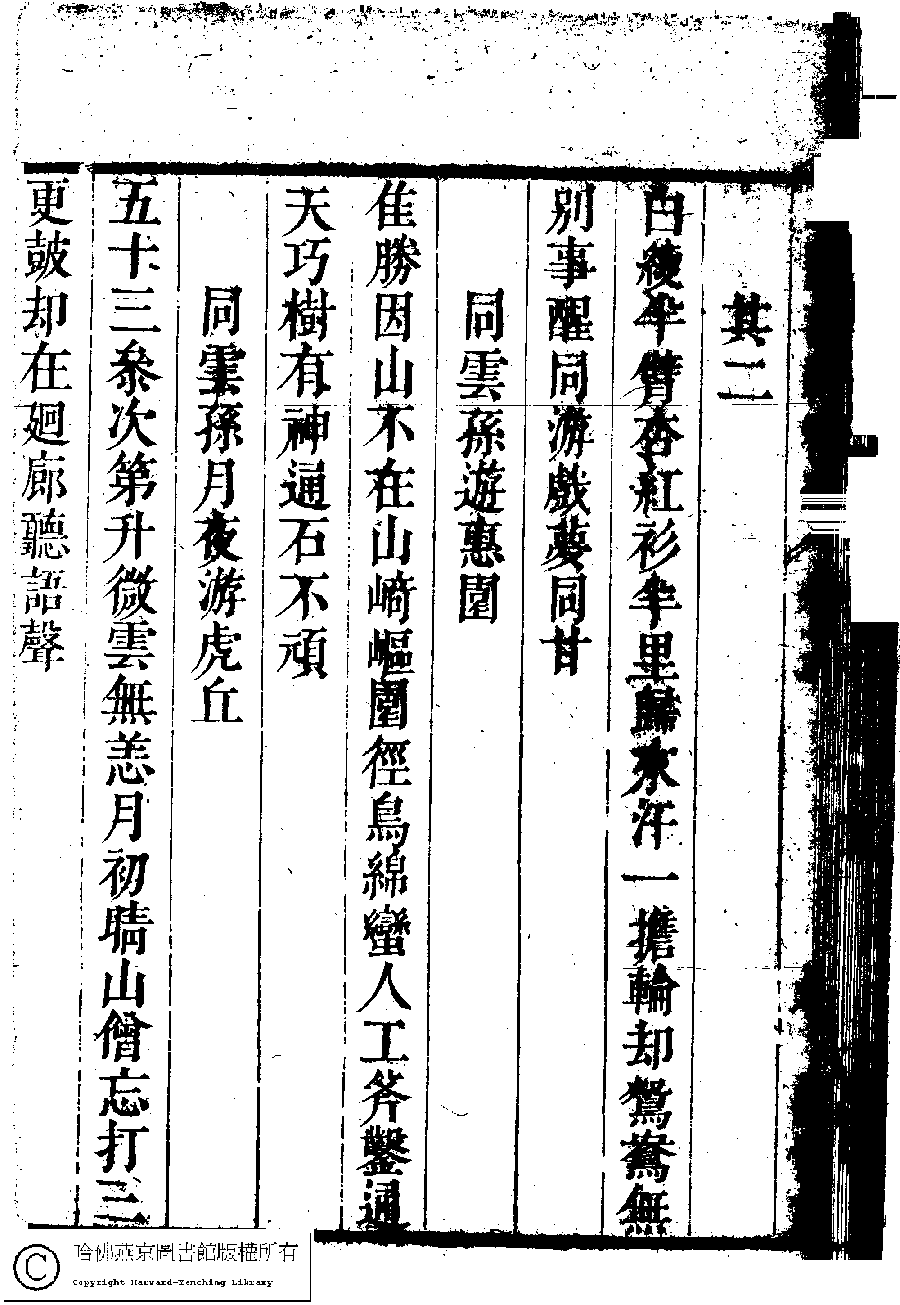 其二
白綾半臂杏紅衫半里歸來汗一擔輸却鴛鴦無
別事醒同游戲夢同甘
同雲孫遊惠園
佳勝因山不在山﨑嶇園徑鳥綿蠻人工斧鑿通
天巧樹有神通石不頑
同雲孫月夜游虎丘
五十三叅次第升微雲無恙月初晴山僧忘打三
更鼓却在廻廊聽語聲
哈佛燕京圖書館版權所有
Copyright Harvard-Yenching Library